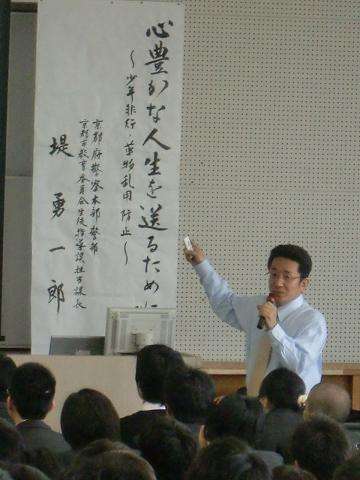 心豊かな人生を送るために
～少年非行・薬物乱用防止～
京都府警察本部警部
京都市教育委員会生徒指導課担当課長
堤勇一郎